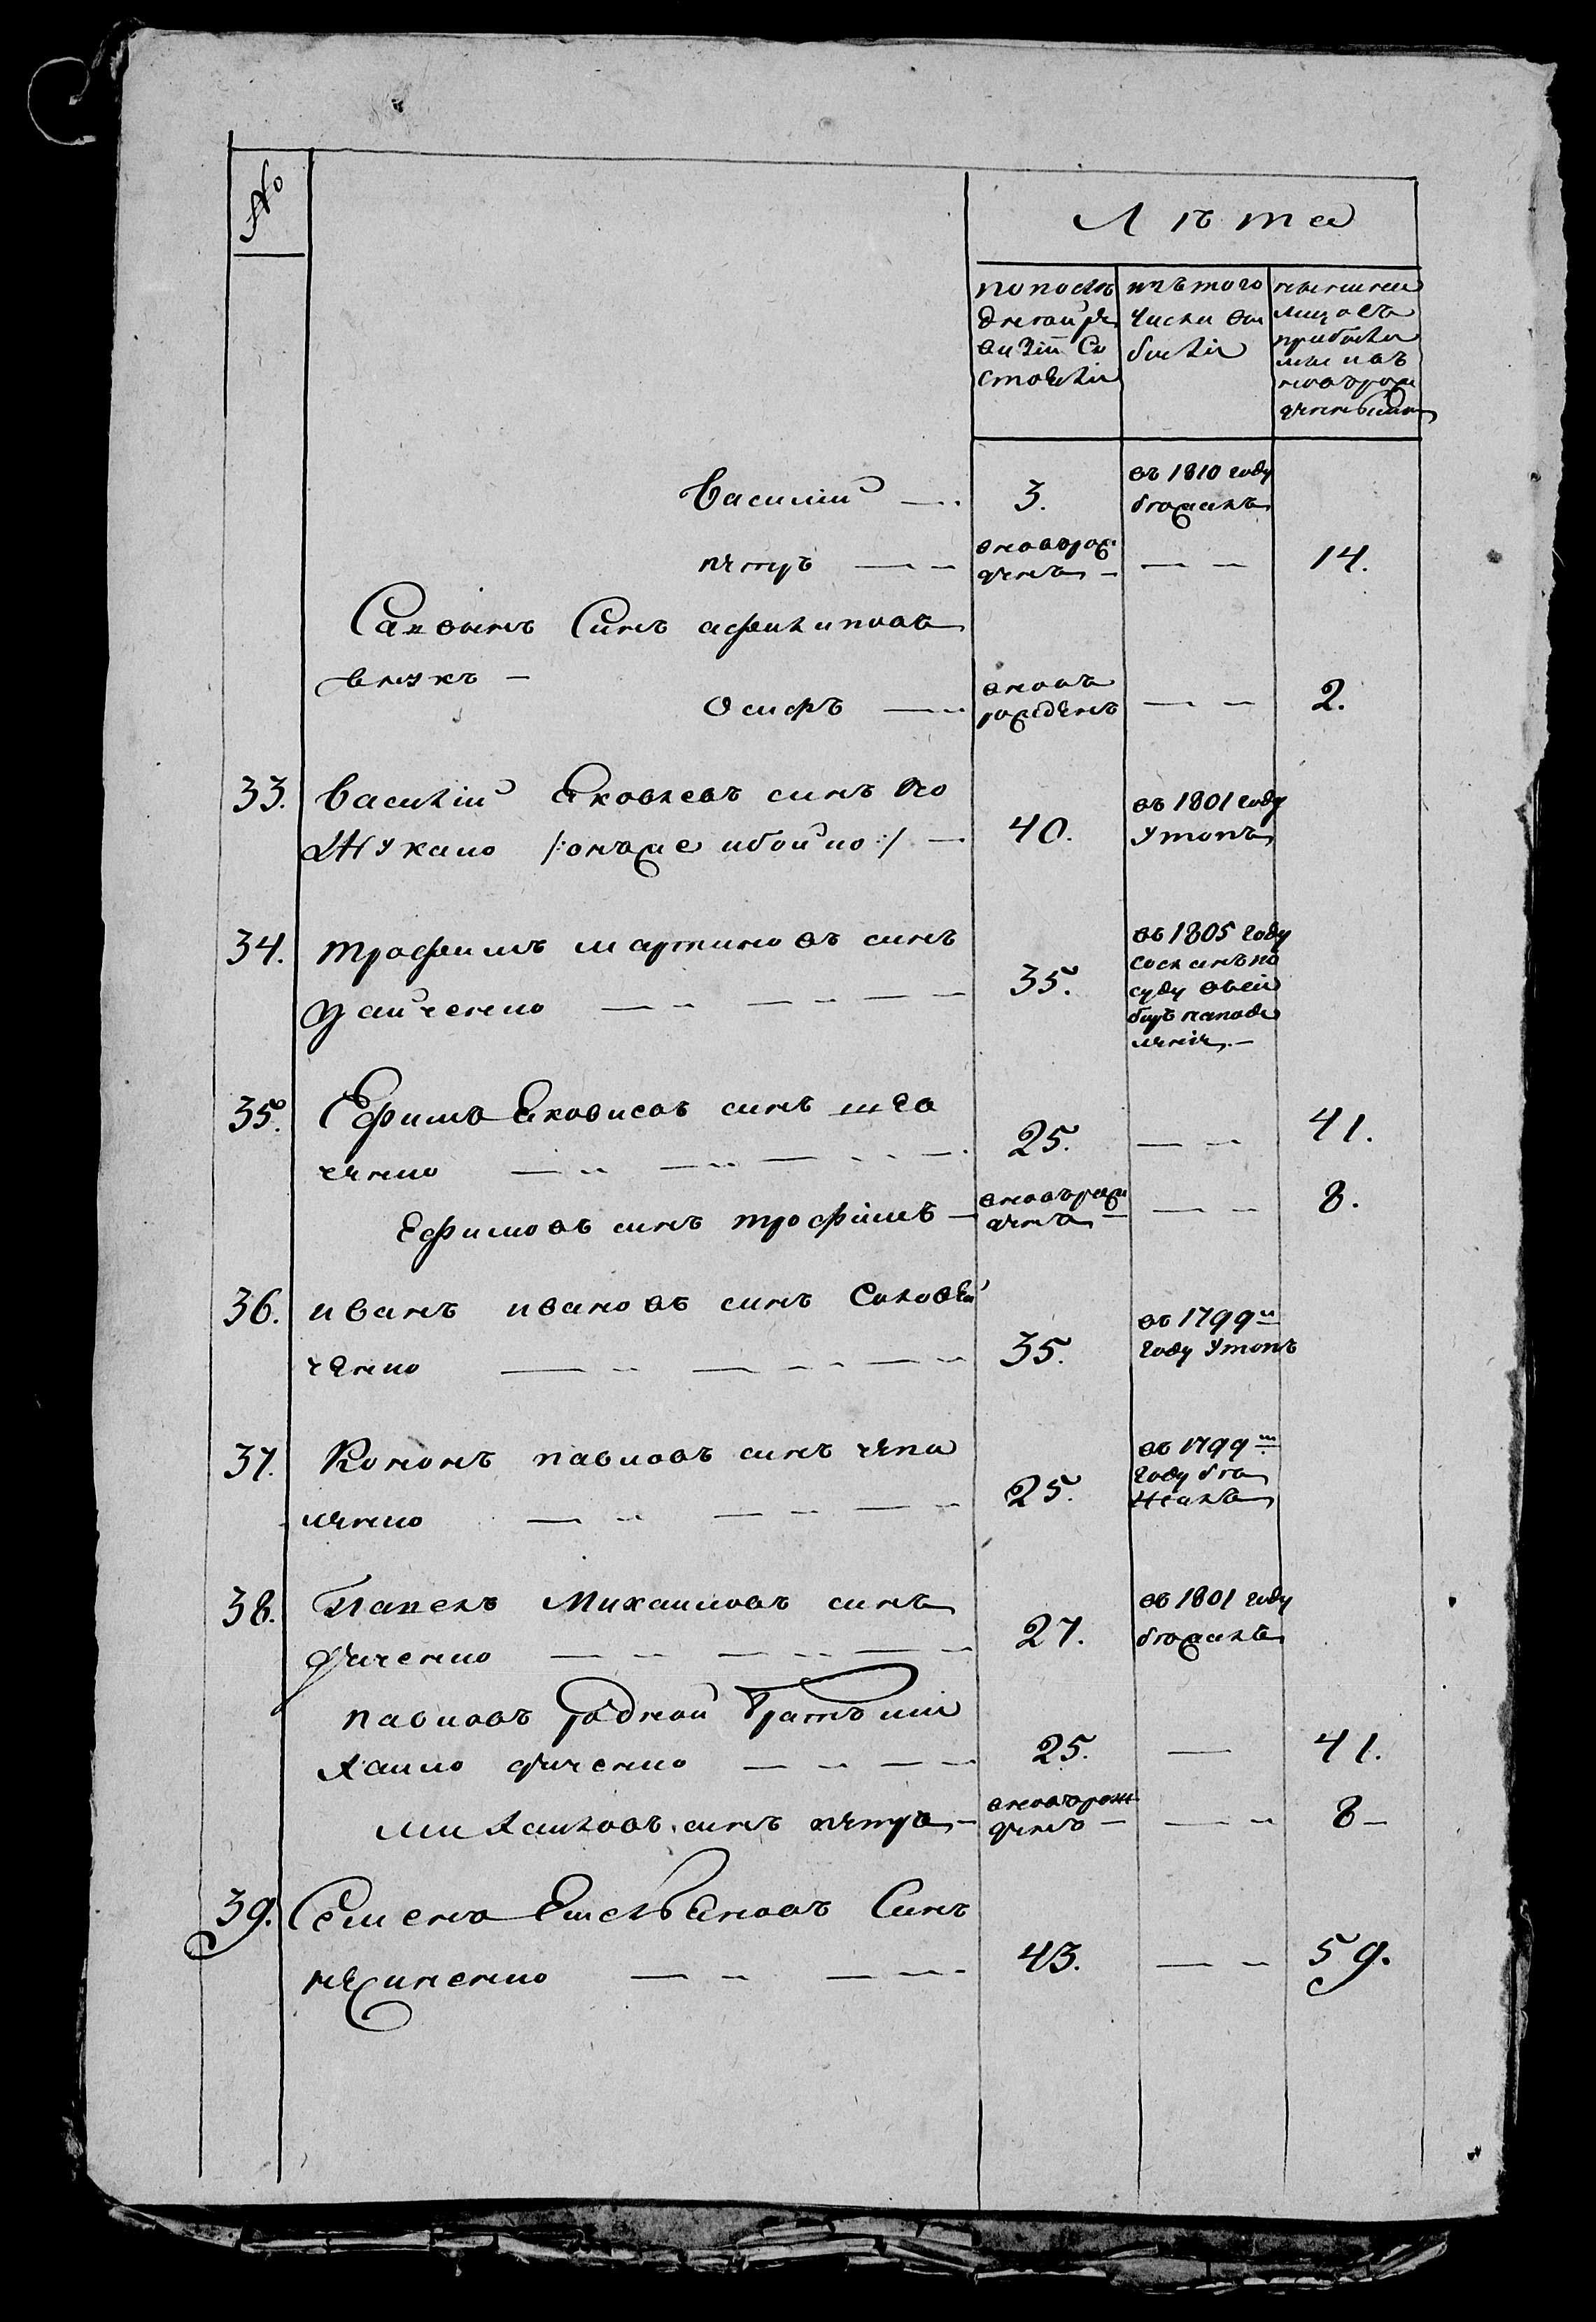 №
Лѣта
по послѣ
дней ре
визіи Со
стояли
изъ того
числа вы
были
нынѣ на
лицо съ
прибылы
ми и въ
новъ рож
денными
Василий — 3. въ 1810 году
бѣжалъ
петръ — вновь рож
денъ — — 14.
Савынъ Синъ афилиповъ
внукъ —
Осифъ — вновь
рожденъ — 2.
33. Василій Яковлевъ синъ Ко
жухало /:онъже ибойло:/ — 40. въ 1801 году
Утопъ
34. трофимъ мартиновъ синъ
Зайченко — 35. въ 1805 году
сосланъ по
суду въ си
биръ на посе
леніе. —
35. Ефимъ Яковлевъ синъ шев
ченко — 25. — 41.
Ефимовъ синъ трофимъ — вновъ рож
денъ — — 8.
36. иванъ ивановъ синъ Соловей
ченко — 35. въ 1799м
году Утопъ
37. Кононъ павловъ синъ чепи
ленко — 25. въ 1799м
году бѣ
жалъ
38. Павелъ Михаиловъ синъ
дяченко — 27. въ 1801 году
бѣжалъ
павловъ родной братъ ми
хаило дяченко — 25. — 41.
михаиловъ синъ петръ — вновъ рож
денъ — — 8 —
39. Семенъ Емельяновъ Синъ
нежиненко — 43. — 59.